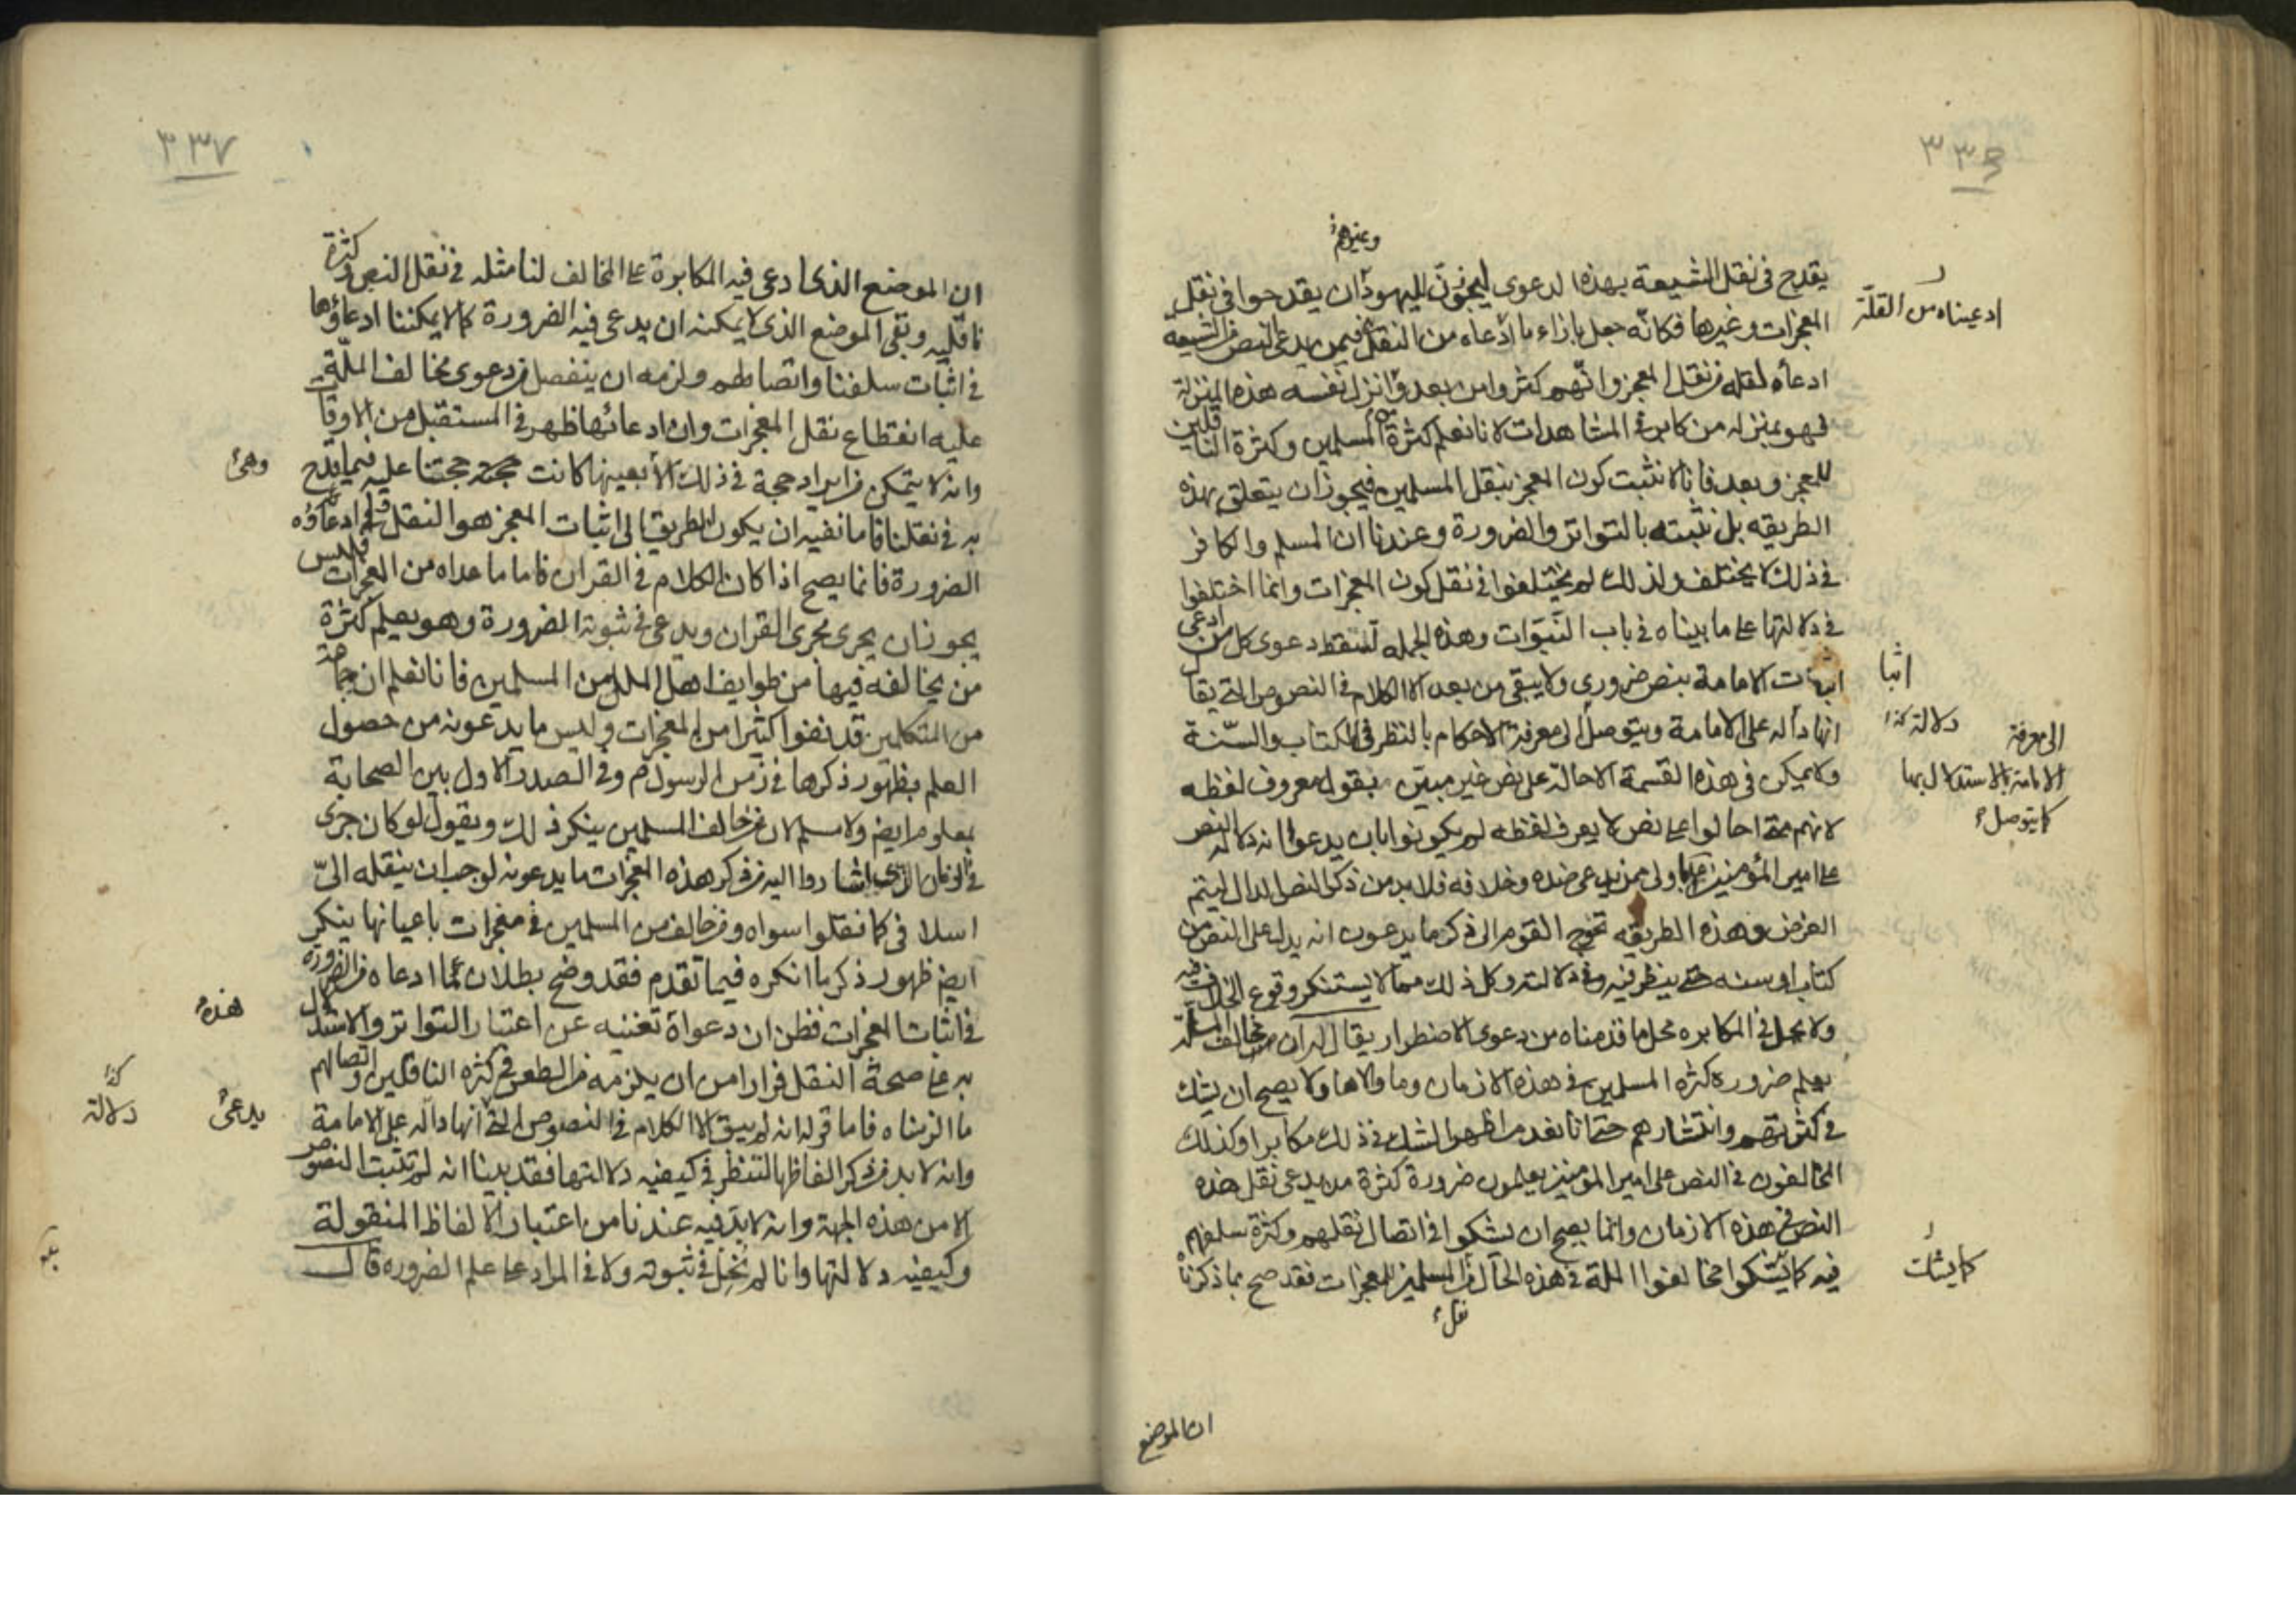 ٣٣٦
وغيرهم
يقدح في نقل الشيعة بهذه الدعوى ليجوزن لليهود ان يقدحوا في نقل
المعجزات وغيرها فكانه جعل بازاء ما ادعاه من النقل فيمن يدعى النص من الشيعة
ادعينا من القلة
ادعاه لقله من نقل المعجز وانهم كثروا من بعد وانزل نفسه هذه المنزلة
فهو بمنزله من كابر في المشاهدات لانا نعلم كثرة المسلمين وكثرة الناقلين
للمعجز وبعد فانا لا نثبت كون المعجز بنقل المسلمين فيجوز ان يتعلق بهذه
الطريقه بل نثبته بالتواتر والضرورة وعندنا ان المسلم والكافر
في ذلك لا يختلف ولذلك لم يختلفوا في نقل كون المعجزات وانما اختلفوا
في دلالتها على ما بيناه في باب النبوات وهذه الجمله تسقط دعوى كل من ادعى
اثبات الامامة بنص ضرورى ولا يبقى من بعد الا الكلام في النصوص التي يقال
اثبا
انها دالة على الامامة ويتوصل الى معرفة الاحكام بالنظر في الكتاب والسنة
دلالة كذا
الى معرفة
الامامة بالاستدلال بها
كما يتوصل
ولا يمكن في هذه القسمة الاحالة على نص غير مبين بقول معروف لفظه
لانهم متى احالوا على نص لا يعرف لفظه لم يكونوا بان يدعوا انه دلالة النص
على امير المؤمنين اولى ممن يدعى ضده وخلافه فلا بد من ذكر النص الدال ليتم
الغرض وهذه الطريقه تحوج القوم الى ذكر ما يدعون انه يدل على النص من
كتاب او سنه حتى ينظر فيه وفي دلالته وكل ذلك مما لا يستنكر وقوع الخلاف فيه
ولا يحل في المكابره محل ما قدمناه من دعوى الاضطرار يقال له ان مخالف الملة
يعلم ضرورة كثرة المسلمين في هذه الازمان وما والاها ولا يصح ان يشك
في كثرتهم وانتشارهم حتى انا نعد من اظهر الشك في ذلك مكابرا وكذلك
المخالفون في النص على امير المؤمنين يعلمون ضرورة كثرة من يدعى نقل هذه
النص في هذه الازمان وانما يصح ان يشكوا في اتصال نقلهم وكثرة سلفهم
فيه كما يشكوا مخالفوا الملة في هذه الحال في المسلمين المعجزات فقد صح بما ذكرناه
كما يشك
نقل
ان الموضع
٣٣٧
ان الموضع الذى ادعى فيه المكابرة على المخالف لنا مثله في نقل النص وكثرة
ناقليه وبقى الموضع الذى لا يمكنه ان يدعى فيه الضرورة كما لا يمكننا ادعاؤها
في اثبات سلفنا واتصالهم ولزمه ان ينفصل من دعوى مخالف الملة
عليه انقطاع نقل المعجزات وان ادعائها ظهر في المستقبل من الاوقات
وانه لا يتمكن من ايراد حجة في ذلك الا بعينها كانت حجته حجتنا عليه فيما قدح
وهى
به في نقلنا فاما نفيه ان يكون الطريق الى اثبات المعجز هو النقل وادعاؤه
الضرورة فانما يصح اذا كان الكلام في القران فاما ما عداه من المعجزات فليس
يجوز ان يجرى مجرى القران ويدعى في ثبوته الضرورة وهو يعلم كثرة
من يخالفه فيها من طوايف اهل الملل من المسلمين فانا نعلم ان جماعة
من المتكلمين قد نفوا كثيرا من المعجزات وليس ما يدعونه من حصول
العلم بظهور ذكرها في زمن الرسول وفي الصدر الاول بين الصحابة
بمعلوم ايض ولا مسلم لان من خالف المسلمين ينكر ذلك ويقول لو كان جرى
في الزمان الذى اشاروا اليه من ذكر هذه المعجزات ما يدعونه لوجب ان ينقله الى
اسلافى كما نقلوا سواه ومن خالف من المسلمين في معجزات باعيانها ينكر
ايض ظهور ذكر ما انكره فيما تقدم فقد وضح بطلان ما ادعاه من الضرورة
في اثبات المعجزات فظن ان دعواه تغنيه عن اعتبار التواتر والاستدلال
هذه
به على صحة النقل فرارا من ان يلزمه من الطعن في كثرة الناقلين واتصالهم
ما الزمناه فاما قوله انه لم يبق الا الكلام في النصوص التي انها دالة على الامامة
يدعى
دلالة كذا
وانه لا بد من ذكر الفاظها لتنظر في كيفيه دلالتها فقد بينا انه لم تثبت النصوص
الا من هذه الجهة وانه لا بد فيه عندنا من اعتبار الالفاظ المنقولة
وكيفيه دلالتها وانا لم نحل في ثبوته ولا في المراد على علم الضروره قال